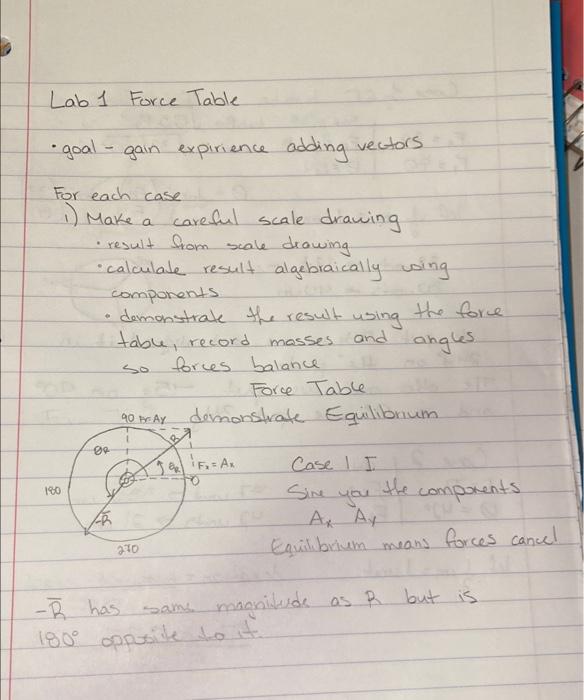 Lab 1 Force Table
• goal - gain expirience adding vectors
For each case
1) Make a careful scale drawing
• result from scale drawing
• calculate result algebraically using
components
• demonstrate the result using the force
table, record masses and angles
so forces balance
Force Table
demonstrate Equilibrium
90 Fy=Ay
R
θR
θR
Fx = Ax
180
0
-R̅
270
Case 1 I
Sine you the components
Ax Ay
Equilibrium means forces cancel
-R̅ has same magnitude as R but is
180° opposite to it